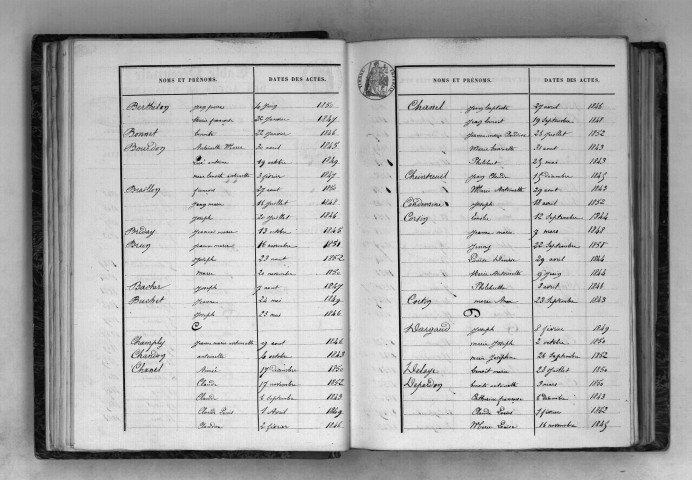 NOMS ET PRÉNOMS. DATES DES ACTES.
Berthelon jean pierre 4 1850
Marie françoise 22 janvier 1847
Bonnet 22 janvier 1846
Bourdon Antoinette Marie 30 avril 1845
19 octobre 1849
2 février 1847
Braillon 27 aout 1850
jean marie 16 juillet 1848
joseph 20 juillet 1846
Beday jeanne marie 13 octobre 1846
Brun jeanne marie 16 novembre 1851
joseph 23 aout 1852
marie 20 novembre 1850
joseph 7 aout 1847
24 mai 1849
joseph 23 mai 1846
C
Champly jeanne marie antoinette 29 aout 1846
Chandon antoinette 4 octobre 1843
Chanel Aimé 17 décembre 1850
Claude 17 novembre 1852
Claude 6 septembre 1843
Claude Louis 1 Avril 1849
Claudine 2 février 1846
NOMS ET PRÉNOMS. DATES DES ACTES.
Chanel jean baptiste 27 avril 1846
jean benoit 19 septembre 1848
jeanne marie Claudine 26 juillet 1852
Marie 31 aout 1843
Philibert 25 mai 1843
Chuinteuil jean Claude 15 décembre 1845
Marie Antoinette 29 aout 1843
Condemine joseph 18 avril 1852
Corsin 12 septembre 1844
jeanne marie 9 mars 1848
22 septembre 1851
29 avril 1844
Marie Antoinette 9 juin 1844
Philiberte 2 avril 1846
23 septembre 1843
D
Dargaud joseph 8 février 1849
marie joseph 2 octobre 1850
marie joséphine 26 septembre 1852
Delaye benoit marie 28 juillet 1850
Depardon benoite antoinette 3 mars 1850
Catherine françoise 6 décembre 1843
Claude Louis 7 février 1852
Marie Louise 16 novembre 1845